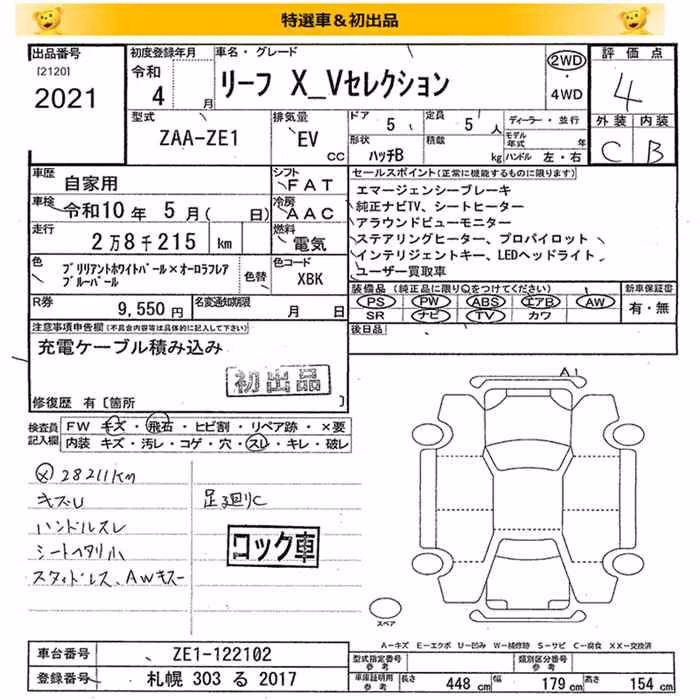 特選車＆初出品
出品番号
[2120]
2021
初度登録年月
令和
4 月
車名・グレード
リーフ X_Vセレクション
2WD
・
4WD
評価点
4
外装 内装
C B
型式
ZAA-ZE1
排気量
EV
cc
ドア
5
定員
5 人
形状
ハッチB
積載
kg
ディーラー・並行
モデル年式 年
ハンドル 左・右
車歴
自家用
シフト
FAT
車検
令和10年 5月( 日)
冷房
AAC
走行
2万8千215 km
燃料
電気
色
ブリリアントホワイトパール×オーロラフレア
ブルーパール
色替
色コード
XBK
R券
9,550円
名変通知期限
月 日
セールスポイント(正常に機能するものに限ります)
エマージェンシーブレーキ
純正ナビTV、シートヒーター
アラウンドビューモニター
ステアリングヒーター、プロパイロット
インテリジェントキー、LEDヘッドライト
ユーザー買取車
装備品(純正品に限り○をつけてください)
PS PW ABS エアB AW
SR ナビ TV カワ
新車保証書
有・無
後日品
注意事項申告欄(不具合内容等は具体的に記入して下さい)
充電ケーブル積み込み
初出品
修復歴 有〔箇所 〕
検査員記入欄
FW キズ・飛石・ヒビ割・リペア跡・×要
内装 キズ・汚レ・コゲ・穴・スレ・キレ・破レ
28211km
キズU
ハンドルスレ
シートヘタリ小
スタッドレス、AWキズ
足廻りC
コック車
A1
スペア
A－キズ E－エクボ U－凹み W－補修跡 S－サビ C－腐食 XX－交換済
車台番号
ZE1-122102
登録番号
札幌 303 る 2017
型式指定番号
参考
類別区分番号
参考
車庫証明用
参考
長さ 448 cm 幅 179 cm 高さ 154 cm